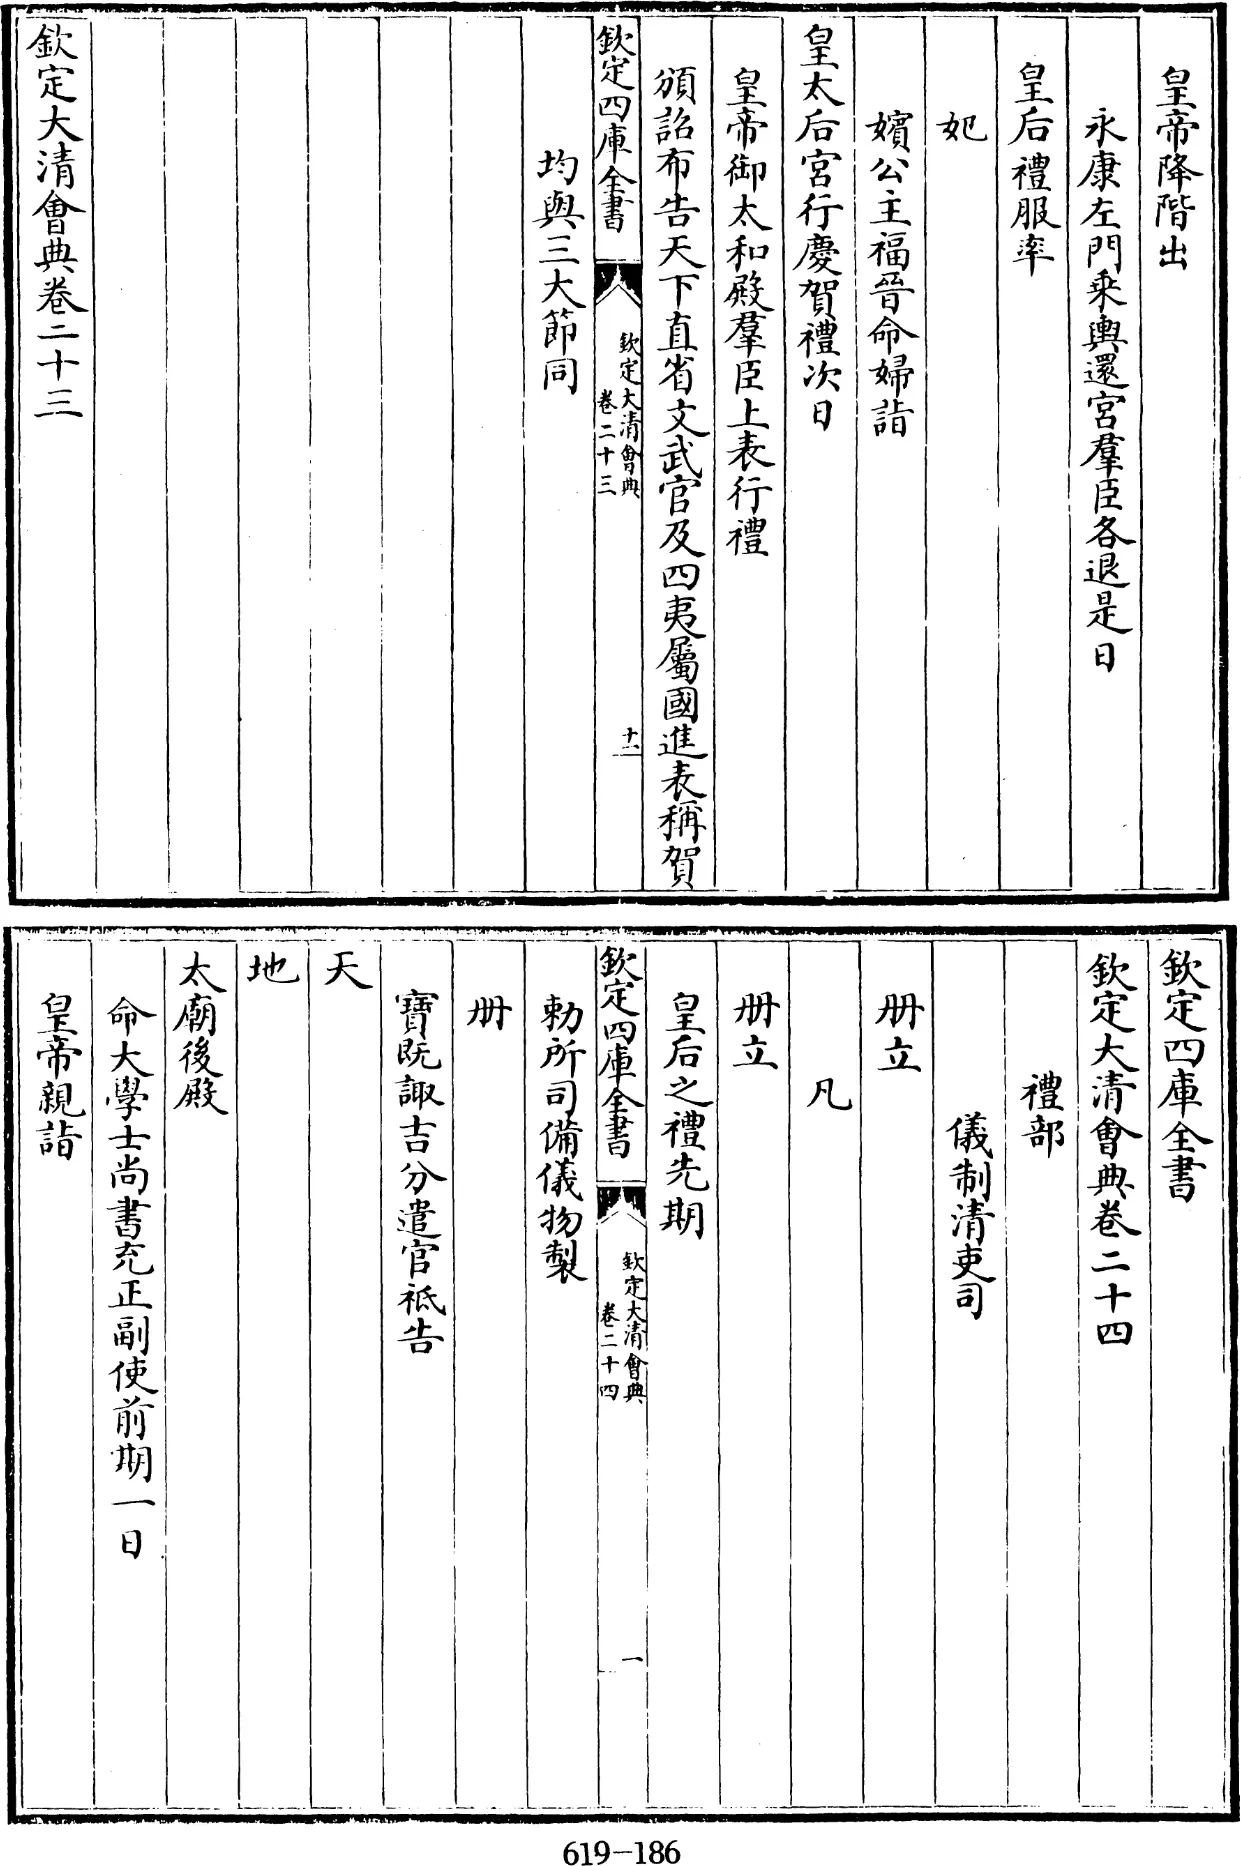 皇帝降階出
永康左門乘輿還宮羣臣各退是日
皇后禮服率
妃
嬪公主福晉命婦詣
皇太后宮行慶賀禮次日
皇帝御太和殿羣臣上表行禮
頒詔布告天下直省文武官及四夷屬國進表稱賀
欽定四庫全書
欽定大清會典
卷二十三
十一
均與三大節同
欽定大清會典卷二十三
欽定四庫全書
欽定大清會典卷二十四
禮部
儀制清吏司
冊立
凡
冊立
皇后之禮先期
欽定四庫全書
欽定大清會典
卷二十四
一
勅所司備儀物製
冊
寶既諏吉分遣官祗告
天
地
太廟後殿
命大學士尚書充正副使前期一日
皇帝親詣
619-186